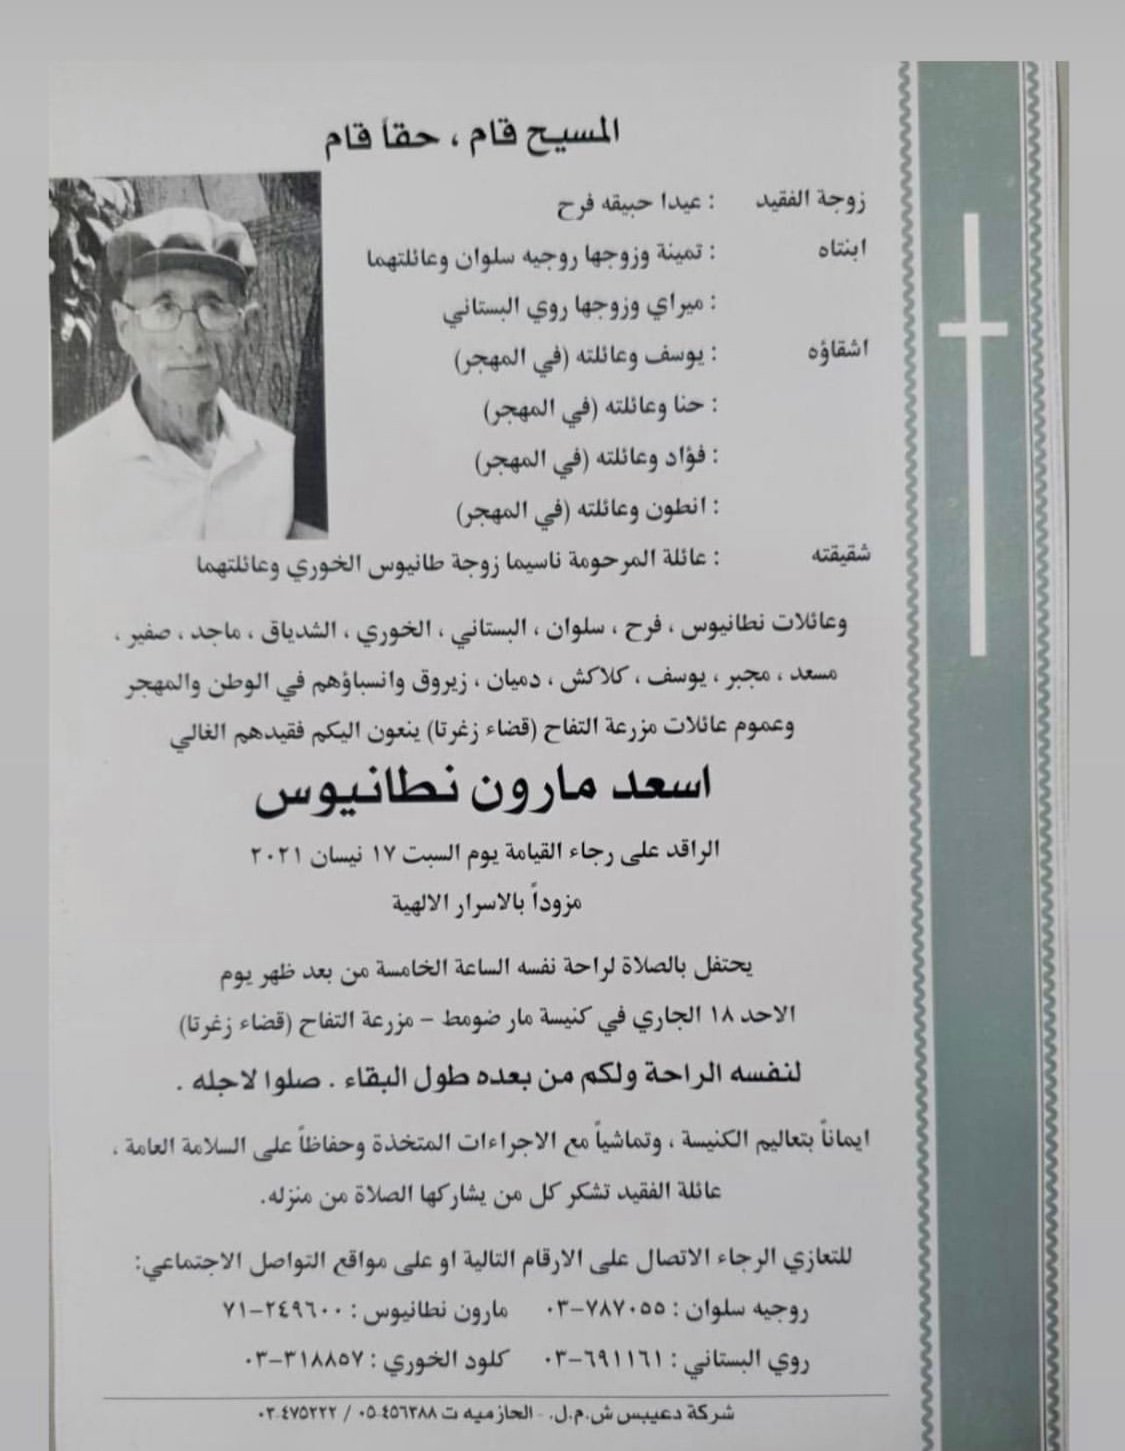 المسيح قام ، حقاً قام
زوجة الفقيد : عيدا حبيقه فرح
ابنتاه : تمينة وزوجها روجيه سلوان وعائلتهما
: ميراي وزوجها روي البستاني
اشقاؤه : يوسف وعائلته (في المهجر)
: حنا وعائلته (في المهجر)
: فؤاد وعائلته (في المهجر)
: انطون وعائلته (في المهجر)
شقيقته : عائلة المرحومة ناسيما زوجة طانيوس الخوري وعائلتهما
وعائلات نطانيوس ، فرح ، سلوان ، البستاني ، الخوري ، الشدياق ، ماجد ، صفير ،
مسعد ، مجبر ، يوسف ، كلاكش ، دميان ، زيروق وانسباؤهم في الوطن والمهجر
وعموم عائلات مزرعة التفاح (قضاء زغرتا) ينعون اليكم فقيدهم الغالي
اسعد مارون نطانيوس
الراقد على رجاء القيامة يوم السبت ١٧ نيسان ٢٠٢١
مزوداً بالاسرار الالهية
يحتفل بالصلاة لراحة نفسه الساعة الخامسة من بعد ظهر يوم
الاحد ١٨ الجاري في كنيسة مار ضومط – مزرعة التفاح (قضاء زغرتا)
لنفسه الراحة ولكم من بعده طول البقاء . صلوا لاجله .
ايماناً بتعاليم الكنيسة ، وتماشياً مع الاجراءات المتخذة وحفاظاً على السلامة العامة ،
عائلة الفقيد تشكر كل من يشاركها الصلاة من منزله.
للتعازي الرجاء الاتصال على الارقام التالية او على مواقع التواصل الاجتماعي:
روجيه سلوان : ٧٨٧٠٥٥–٠٣ مارون نطانيوس : ٢٤٩٦٠٠–٧١
روي البستاني : ٦٩١١٦١–٠٣ كلود الخوري : ٣١٨٨٥٧–٠٣
شركة دعيبس ش.م.ل. - الحازميه ت ٠٥.٤٥٦٣٨٨ / ٠٣.٤٧٥٢٢٢